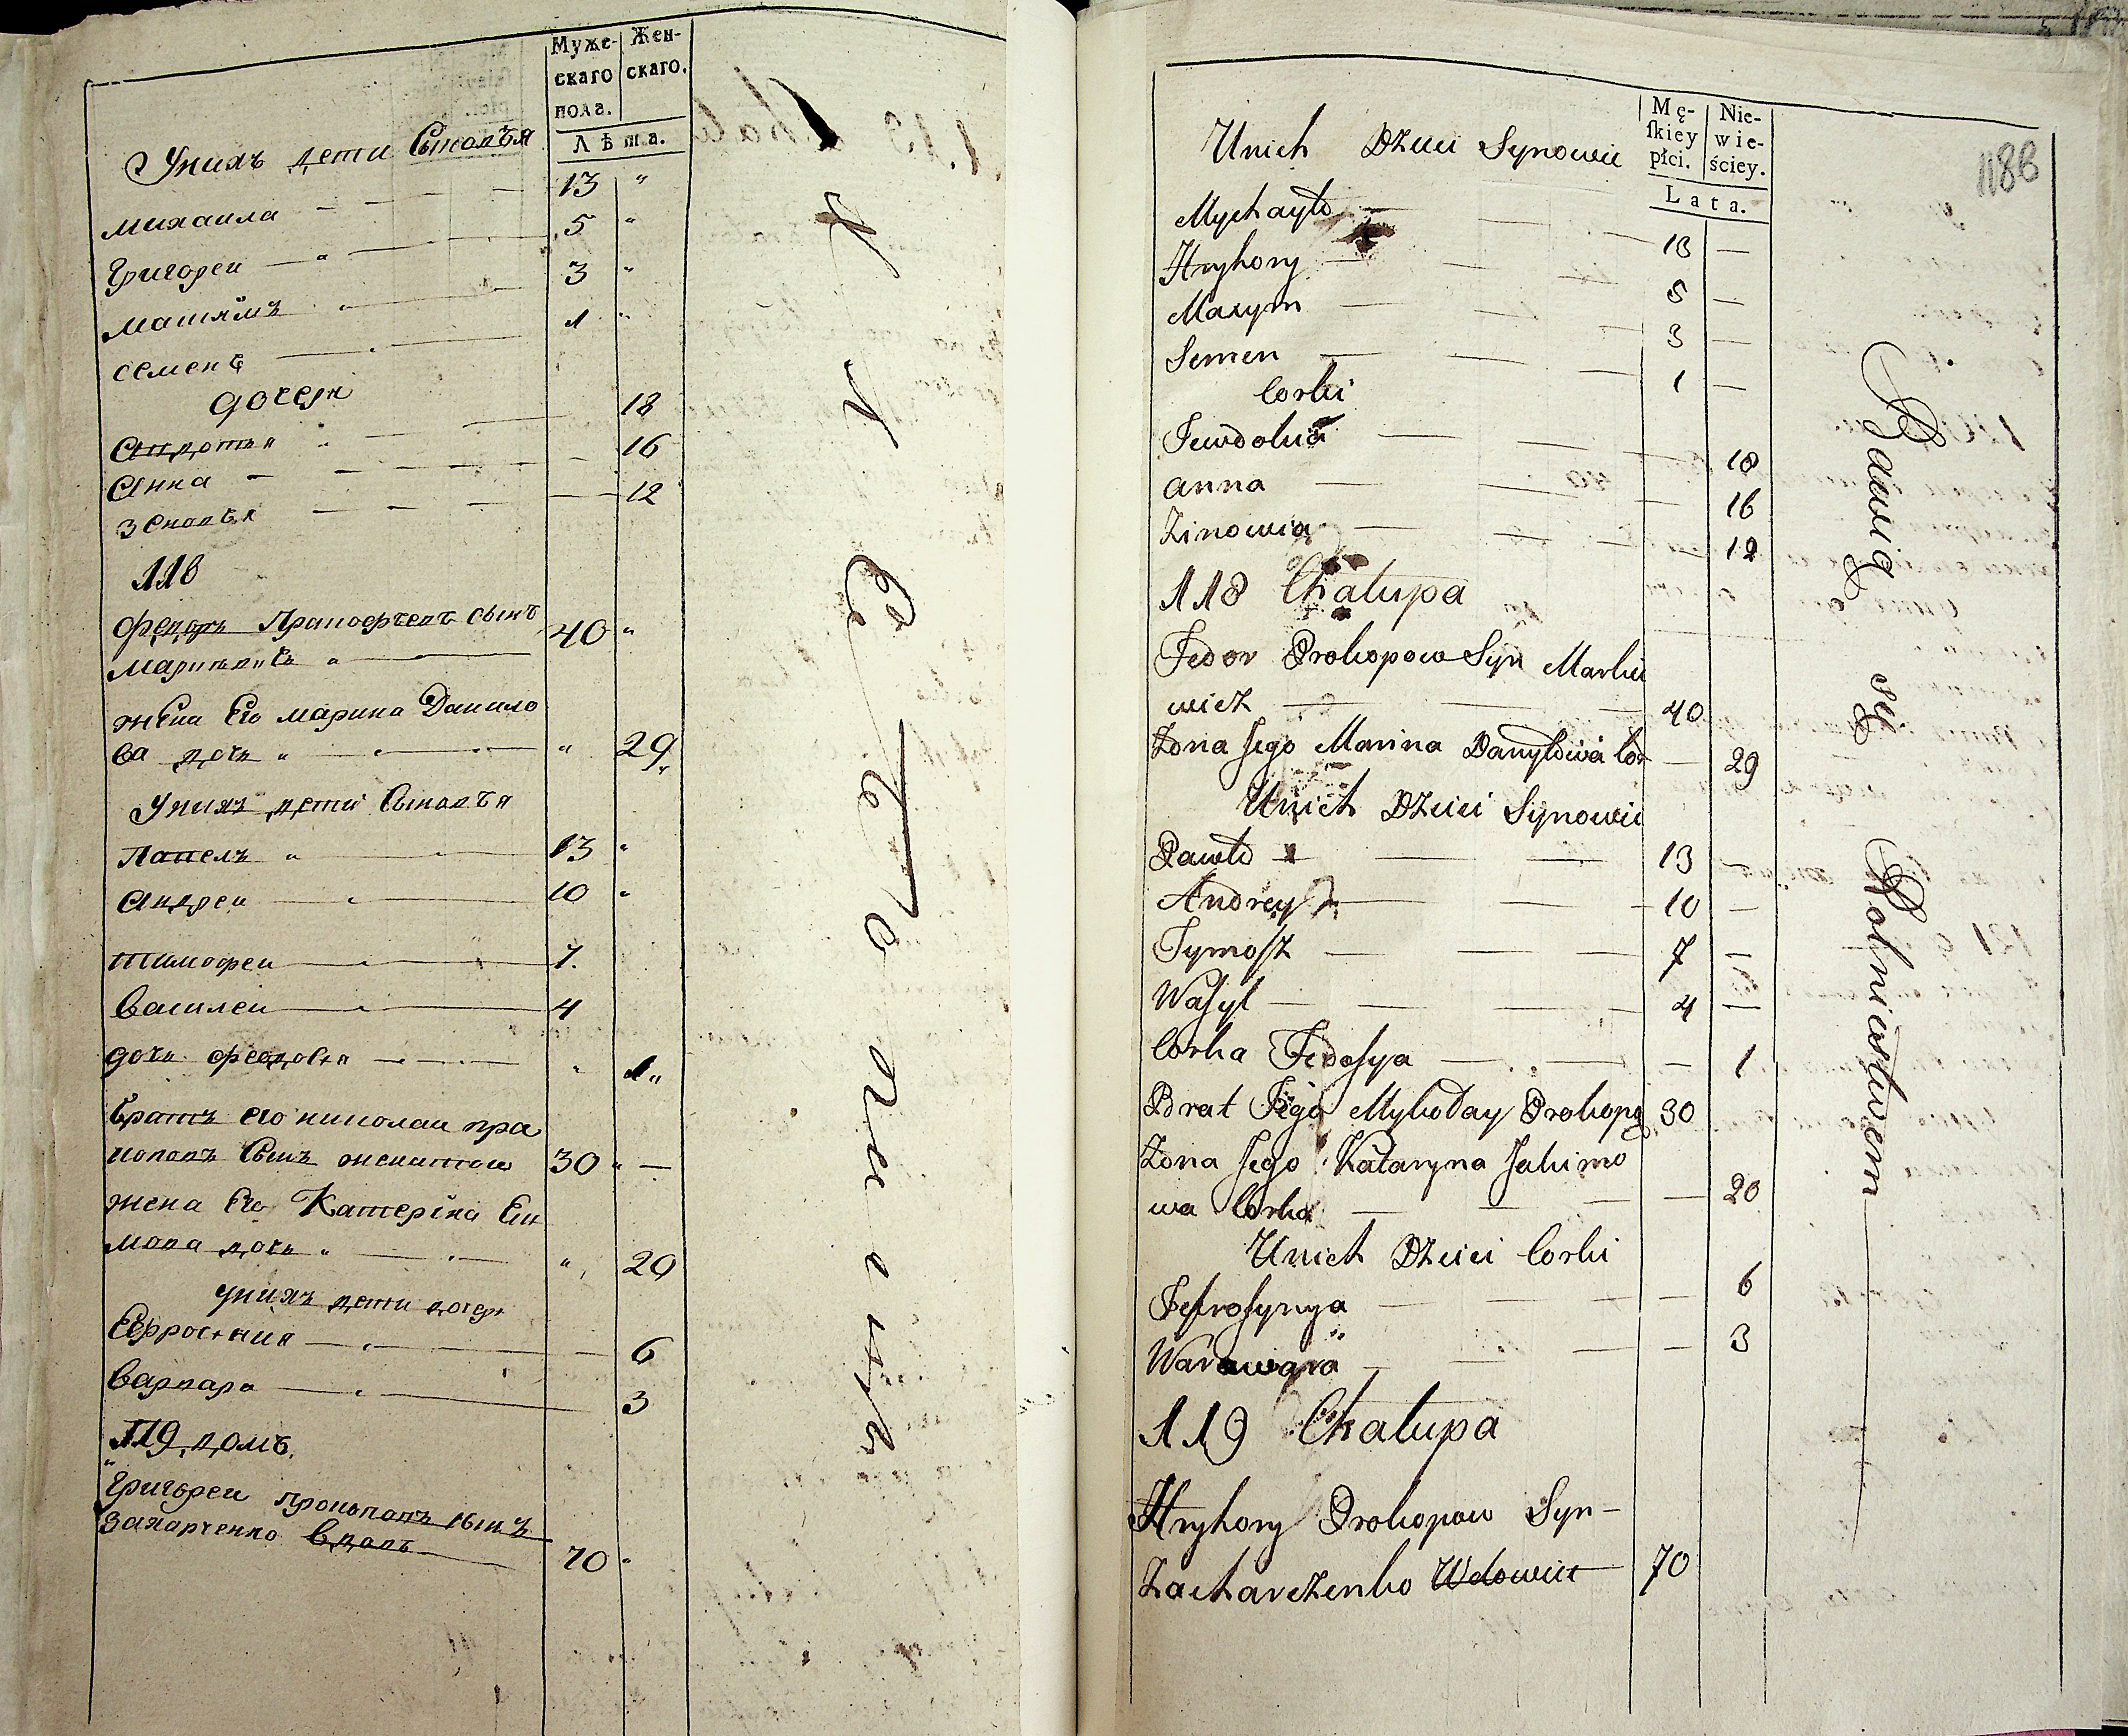 Муже-
скаго
пола.
Жен-
скаго.
Лѣта.
Унихъ дети Сыновъя
михаила 13 "
Григореи 5 "
3 "
семенъ 1 "
дочери
18
Анна 16
Зеновъя 12
118
Федоръ сынъ
40 "
жена Его марина Данило
ва дочь " " 29
Унихъ дети Сыновъя
Павелъ " 13 "
Андреи 10 "
тимофеи 7
Василеи 4
дочь феодосья 1
братъ его николаи про
коповъ Сынъ женатои 30 "
жена Его Катеріна Еки
мова дочь " " 20
унихъ дети дочери
Ефросиния 6
Варвара 3
119 домъ
Григореи прокоповъ сынъ
Захарченко Вдовъ 70 "
Mę-
ſkiey
płci.
Nie-
wie-
ściey.
Lata.
118
Unich Dzieci Synowie
Mychayło 13 —
Hryhory 5 —
Maxym 3 —
Semen 1 —
Corki
18
Anna 16
Zinowia 12
118 Chalupa
Fedor Prokopow Syn Marki
wicz 40
Zona Jego Marina Danyłowa Cor — 29
Unich Dzieci Synowie
Pawło 13 —
Andrey 10 —
Tymoſz 7 —
Waſyl 4 —
Corka Fedoſya — 1
Brat Jego Mykołay Prokopo 30
Zona Jego Kataryna Jakimo
wa Corka — 20
Unich Dzieci Corki
Jefroſynya — 6
Warwara — 3
119 Chalupa
Hryhory Prokopow Syn —
Zacharczenko Wdowiec 70
Bawią się Rolnictwem